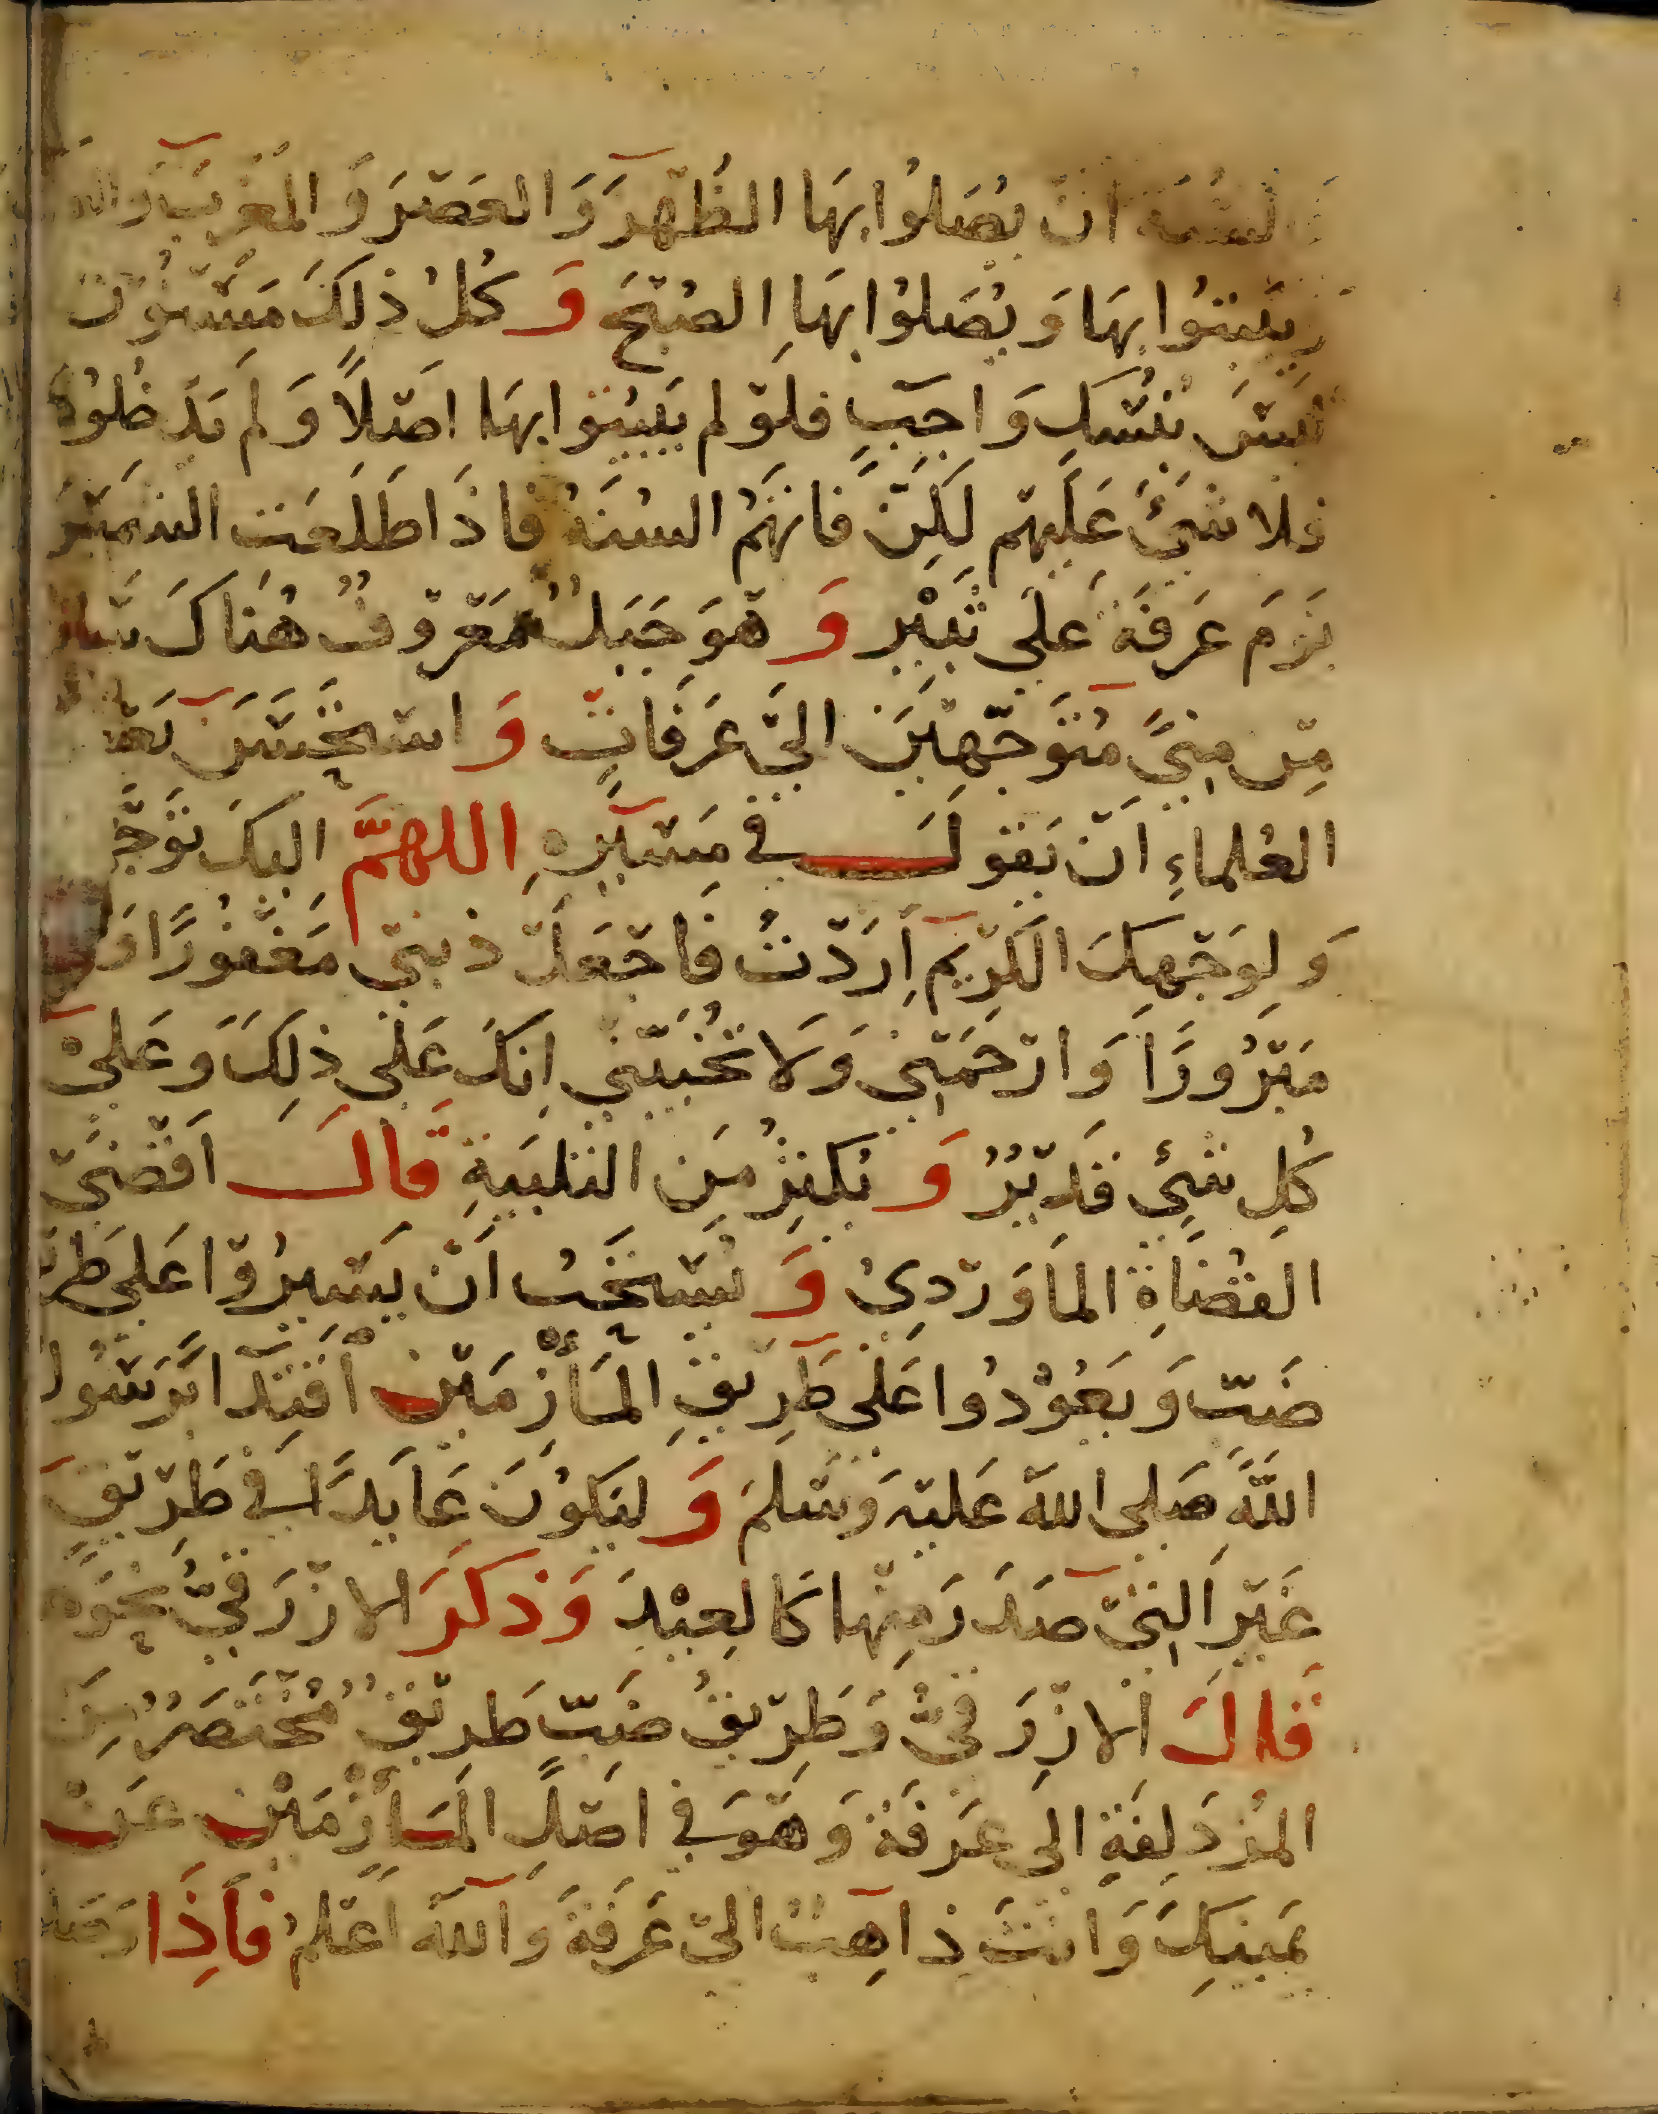 السنة ان يصلوا بها الظهر والعصر والمغرب
ويبيتوا بها ويصلوا بها الصبح وكل ذلك مسنون
ليس بنسك واجب فلو لم يبيتوا بها اصلا ولم يدخلوها
فلا شئ عليهم لكن فاتهم السنة فاذا طلعت الشمس
يوم عرفة على ثبير وهو جبل معروف هناك
من منى متوجهين الى عرفات واستحسن بعض
العلماء ان يقول في مسيره اللهم اليك توجهت
ولوجهك الكريم اردت فاجعل ذنبي مغفورا
مبرورا وارحمني ولا تخيبني انك على ذلك وعلى
كل شئ قدير ويكثر من التلبية قال اقضى
القضاة الماوردي ويستحب ان يسيروا على طريق
ضب ويعودوا على طريق المأزمين اقتدا برسول
الله صلى الله عليه وسلم وليكون عايدا في طريق
غير التي صدر منها كالعيد وذكر الازرقي نحوه
قال الازرقي وطريق ضب طريق مختصر من
المزدلفة الى عرفة وهو في اصل المأزمين عن
يمينك وانت ذاهب الى عرفة والله اعلم فاذا